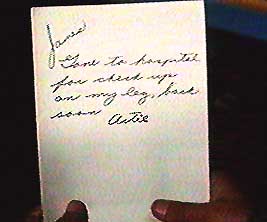 James
Gone to hospital
for check up
on my leg, back
soon Artie